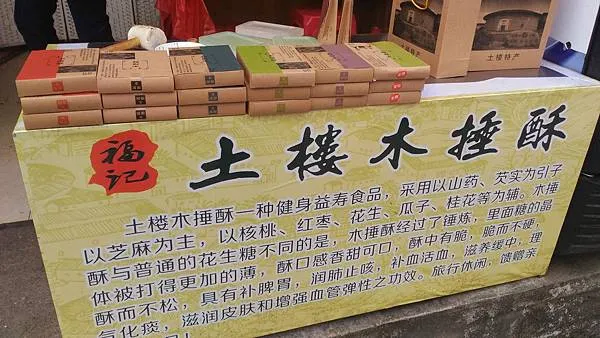 土楼特产
土楼特产
福记
土楼木捶酥
土楼木捶酥一种健身益寿食品，采用以山药、芡实为引子
以芝麻为主，以核桃、红枣、花生、瓜子、桂花等为辅。木捶
酥与普通的花生糖不同的是，木捶酥经过了锤炼，里面糖的晶
体被打得更加的薄，酥口感香甜可口，酥中有脆，脆而不硬，
酥而不松，具有补脾胃，润肺止咳，补血活血，滋养缓中，理
气化痰，滋润皮肤和增强血管弹性之功效。旅行休闲，馈赠亲